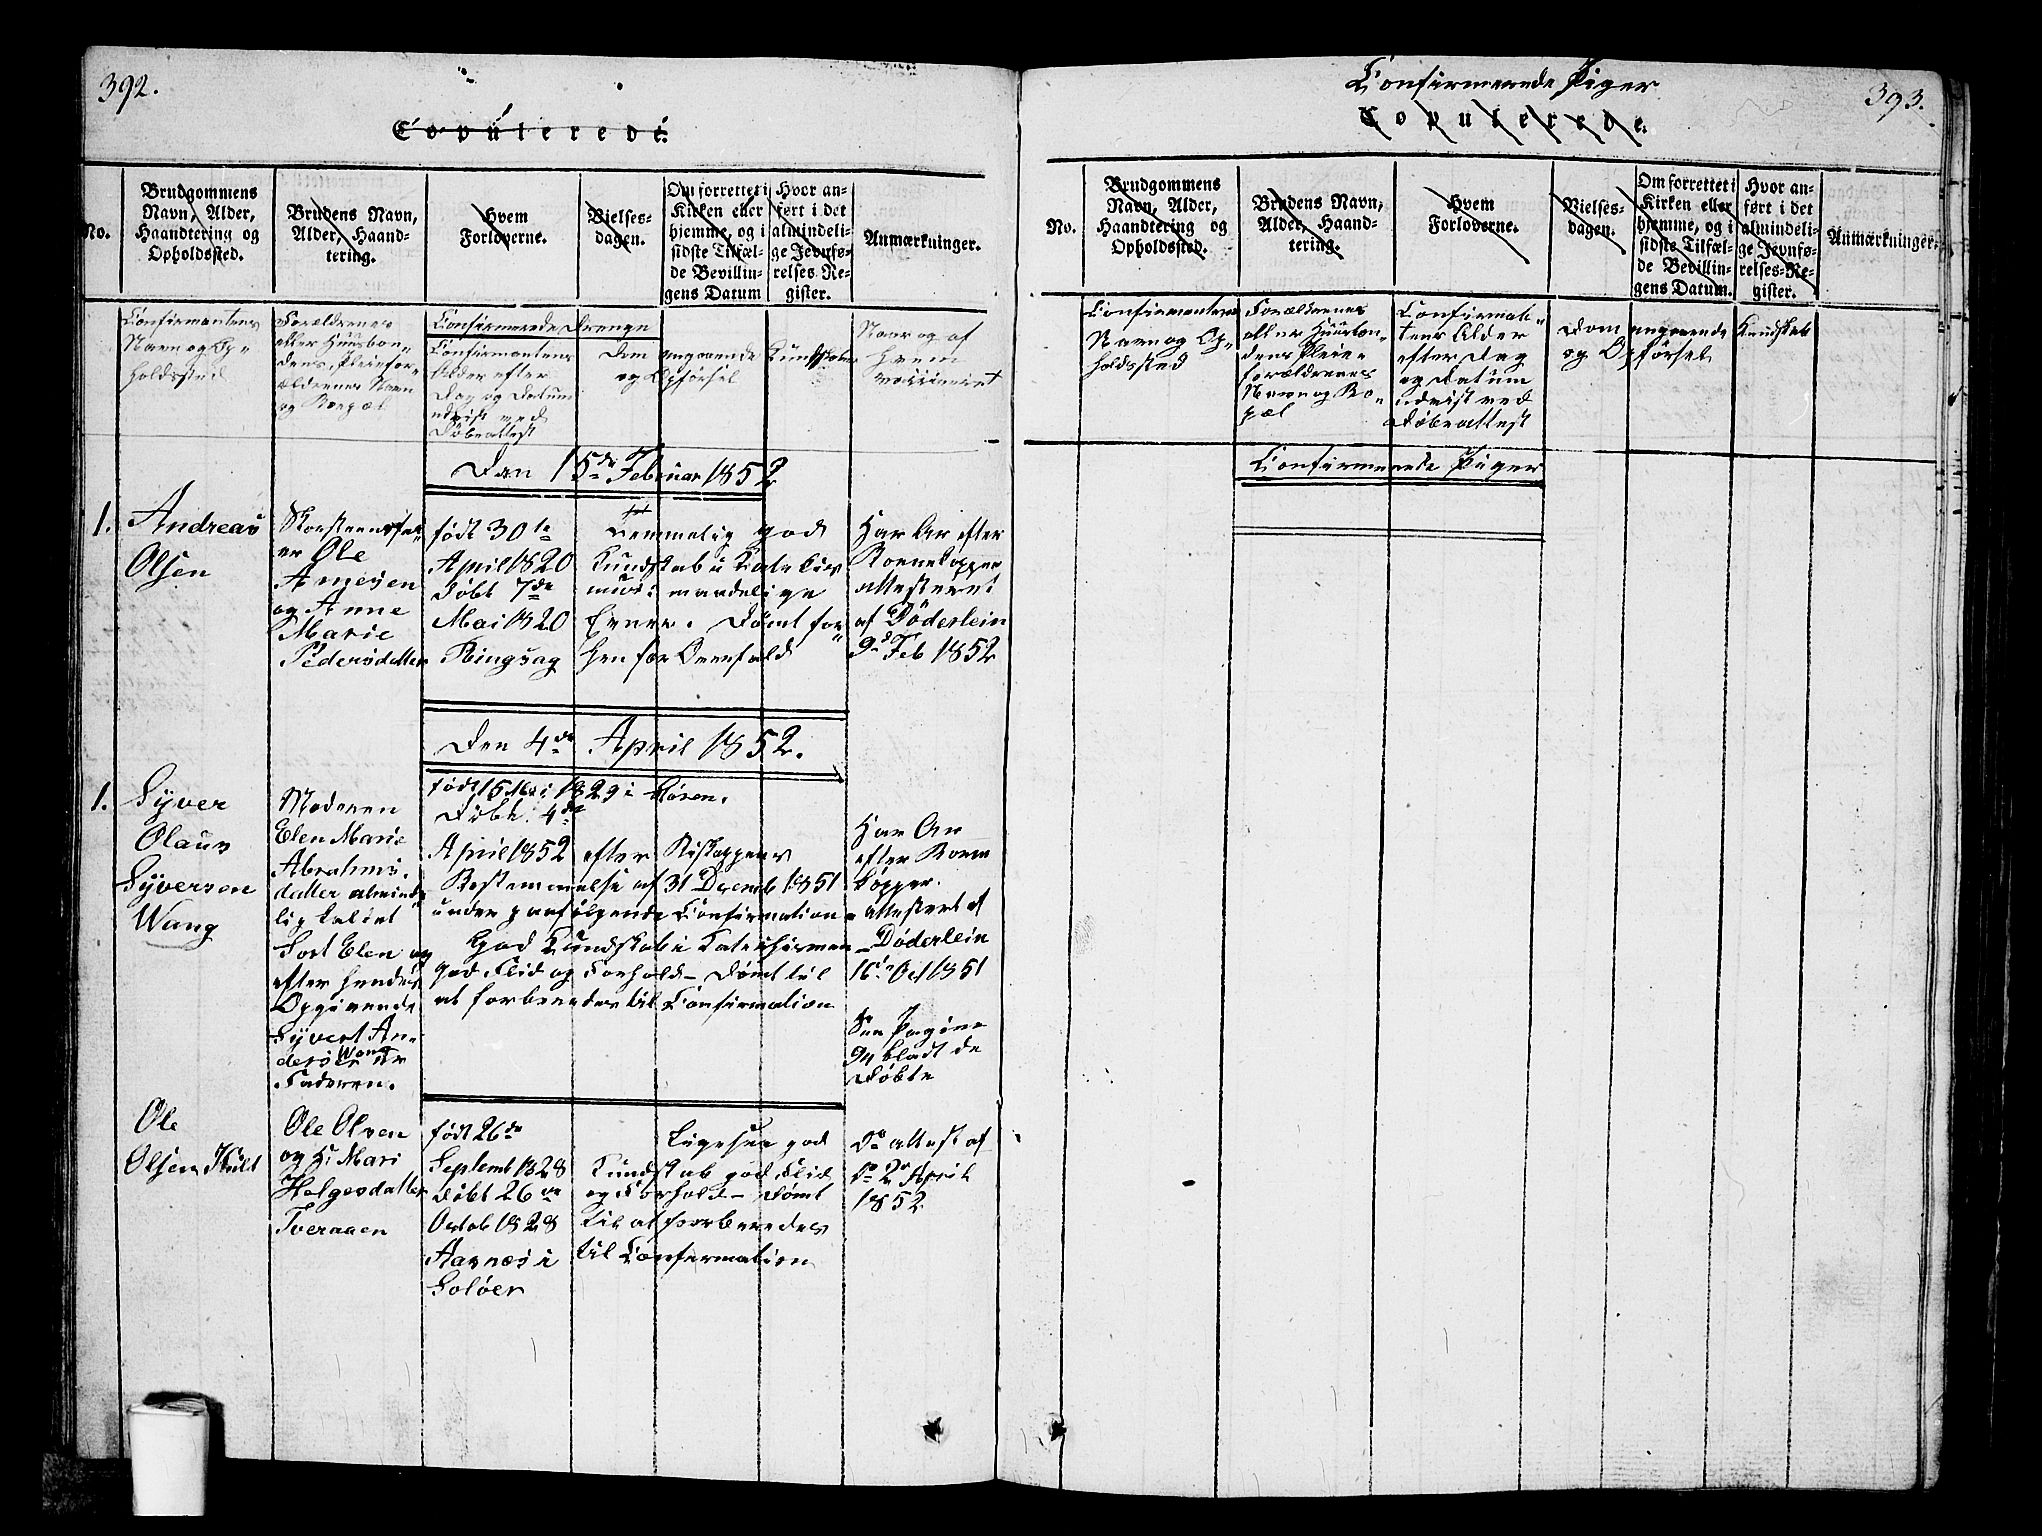 392.
Copulerede.
No.
Brudgommens
Navn, Alder,
Haandtering og
Opholdssted.
Brudens Navn,
Alder, Haand-
tering.
Hvem
Forloverne.
Vielses-
dagen.
Om forrettet i
Kirken eller
hjemme, og i
sidste Tilfæl-
de Bevillin-
gens Datum
Hvor an-
ført i det
almindeli-
ge Jevnfø-
relses Re-
gister.
Anmærkninger.
Confirmantens
Navn og Op-
holdssted
Forældrenes
eller Huusbon-
dens, Pleiefor-
ældrenes Navn
og Bopæl
Confirmerede Drenge
Confirmantens
Alder efter
Dag og Datum
udvist ved
Døbeattest
Dom angaaende Kundskaber
og Opførsel
Naar og af
Hvem
vaccineret
Den 15de Februar 1852
1.
Andreas
Olsen
Skorsteensfei-
er Ole
Arnesen
og Anne
Marie
Pedersdatter
født 30te
April 1820
døbt 7de
Mai 1820
Ringsag
temmelig god
Kundskab i Katekis
mus: maadelige
Evner. Dømt for-
hen for Overfald
Har Ar efter
Koekopper
attesteret
af Döderlein
9de Feb 1852
Den 4de April 1852.
1.
Syver
Olaus
Syversen
Wang
Moderen
Elen Marie
Abrahms-
datter alminde
lig kaldet
Sort Elen og
efter hendes
Opgivende
Syvert An-
ders Wang er
Faderen.
født 15 Mai 1829 i
Døbt: 4de
April 1852 efter Biskoppens
Bestemmelse af 31 Decemb 1851
under paafølgende Confirmation
God Kundskab i Katechismen
god Flid og Forhold - Dømt til
at forberedes til Confirmation
Har Ar
efter
kopper.
attestert af
Döderlein
16de Oct 1851
See Pagina
94 bladt de
Døbte
Ole
Olsen Kuld
Ole Olsen
og H. Mari
Helgesdatter
Tveraaen
født 26de
Septemb 1828
døbt 26de
Octob 1828
Aasnæs i
Soløer
Ligesaa god
Kundskab god Flid
og Forhold - Dømt
til at forberedes
til Confirmation
Do attest af
Do 2de April
1852
Confirmerede Piger
393.
Copulerede.
No.
Brudgommens
Navn, Alder,
Haandtering og
Opholdssted.
Brudens Navn,
Alder, Haand-
tering.
Hvem
Forloverne.
Vielses-
dagen.
Om forrettet i
Kirken eller
hjemme, og i
sidste Tilfæl-
de Bevillin-
gens Datum.
Hvor an-
ført i det
almindeli-
ge Jevnfø-
relses-Re-
gister.
Anmærkninger.
Confirmantens
Navn og Op-
holdssted
Forældrenes
eller Huusbon-
dens Pleie-
forældrenes
Navn og Bo-
pæl
Confirman-
tens Alder
efter Dag
og Datum
udvist ved
Døbeattest
Dom angaaende Kundskab
og Opførsel
Confirmerede Piger